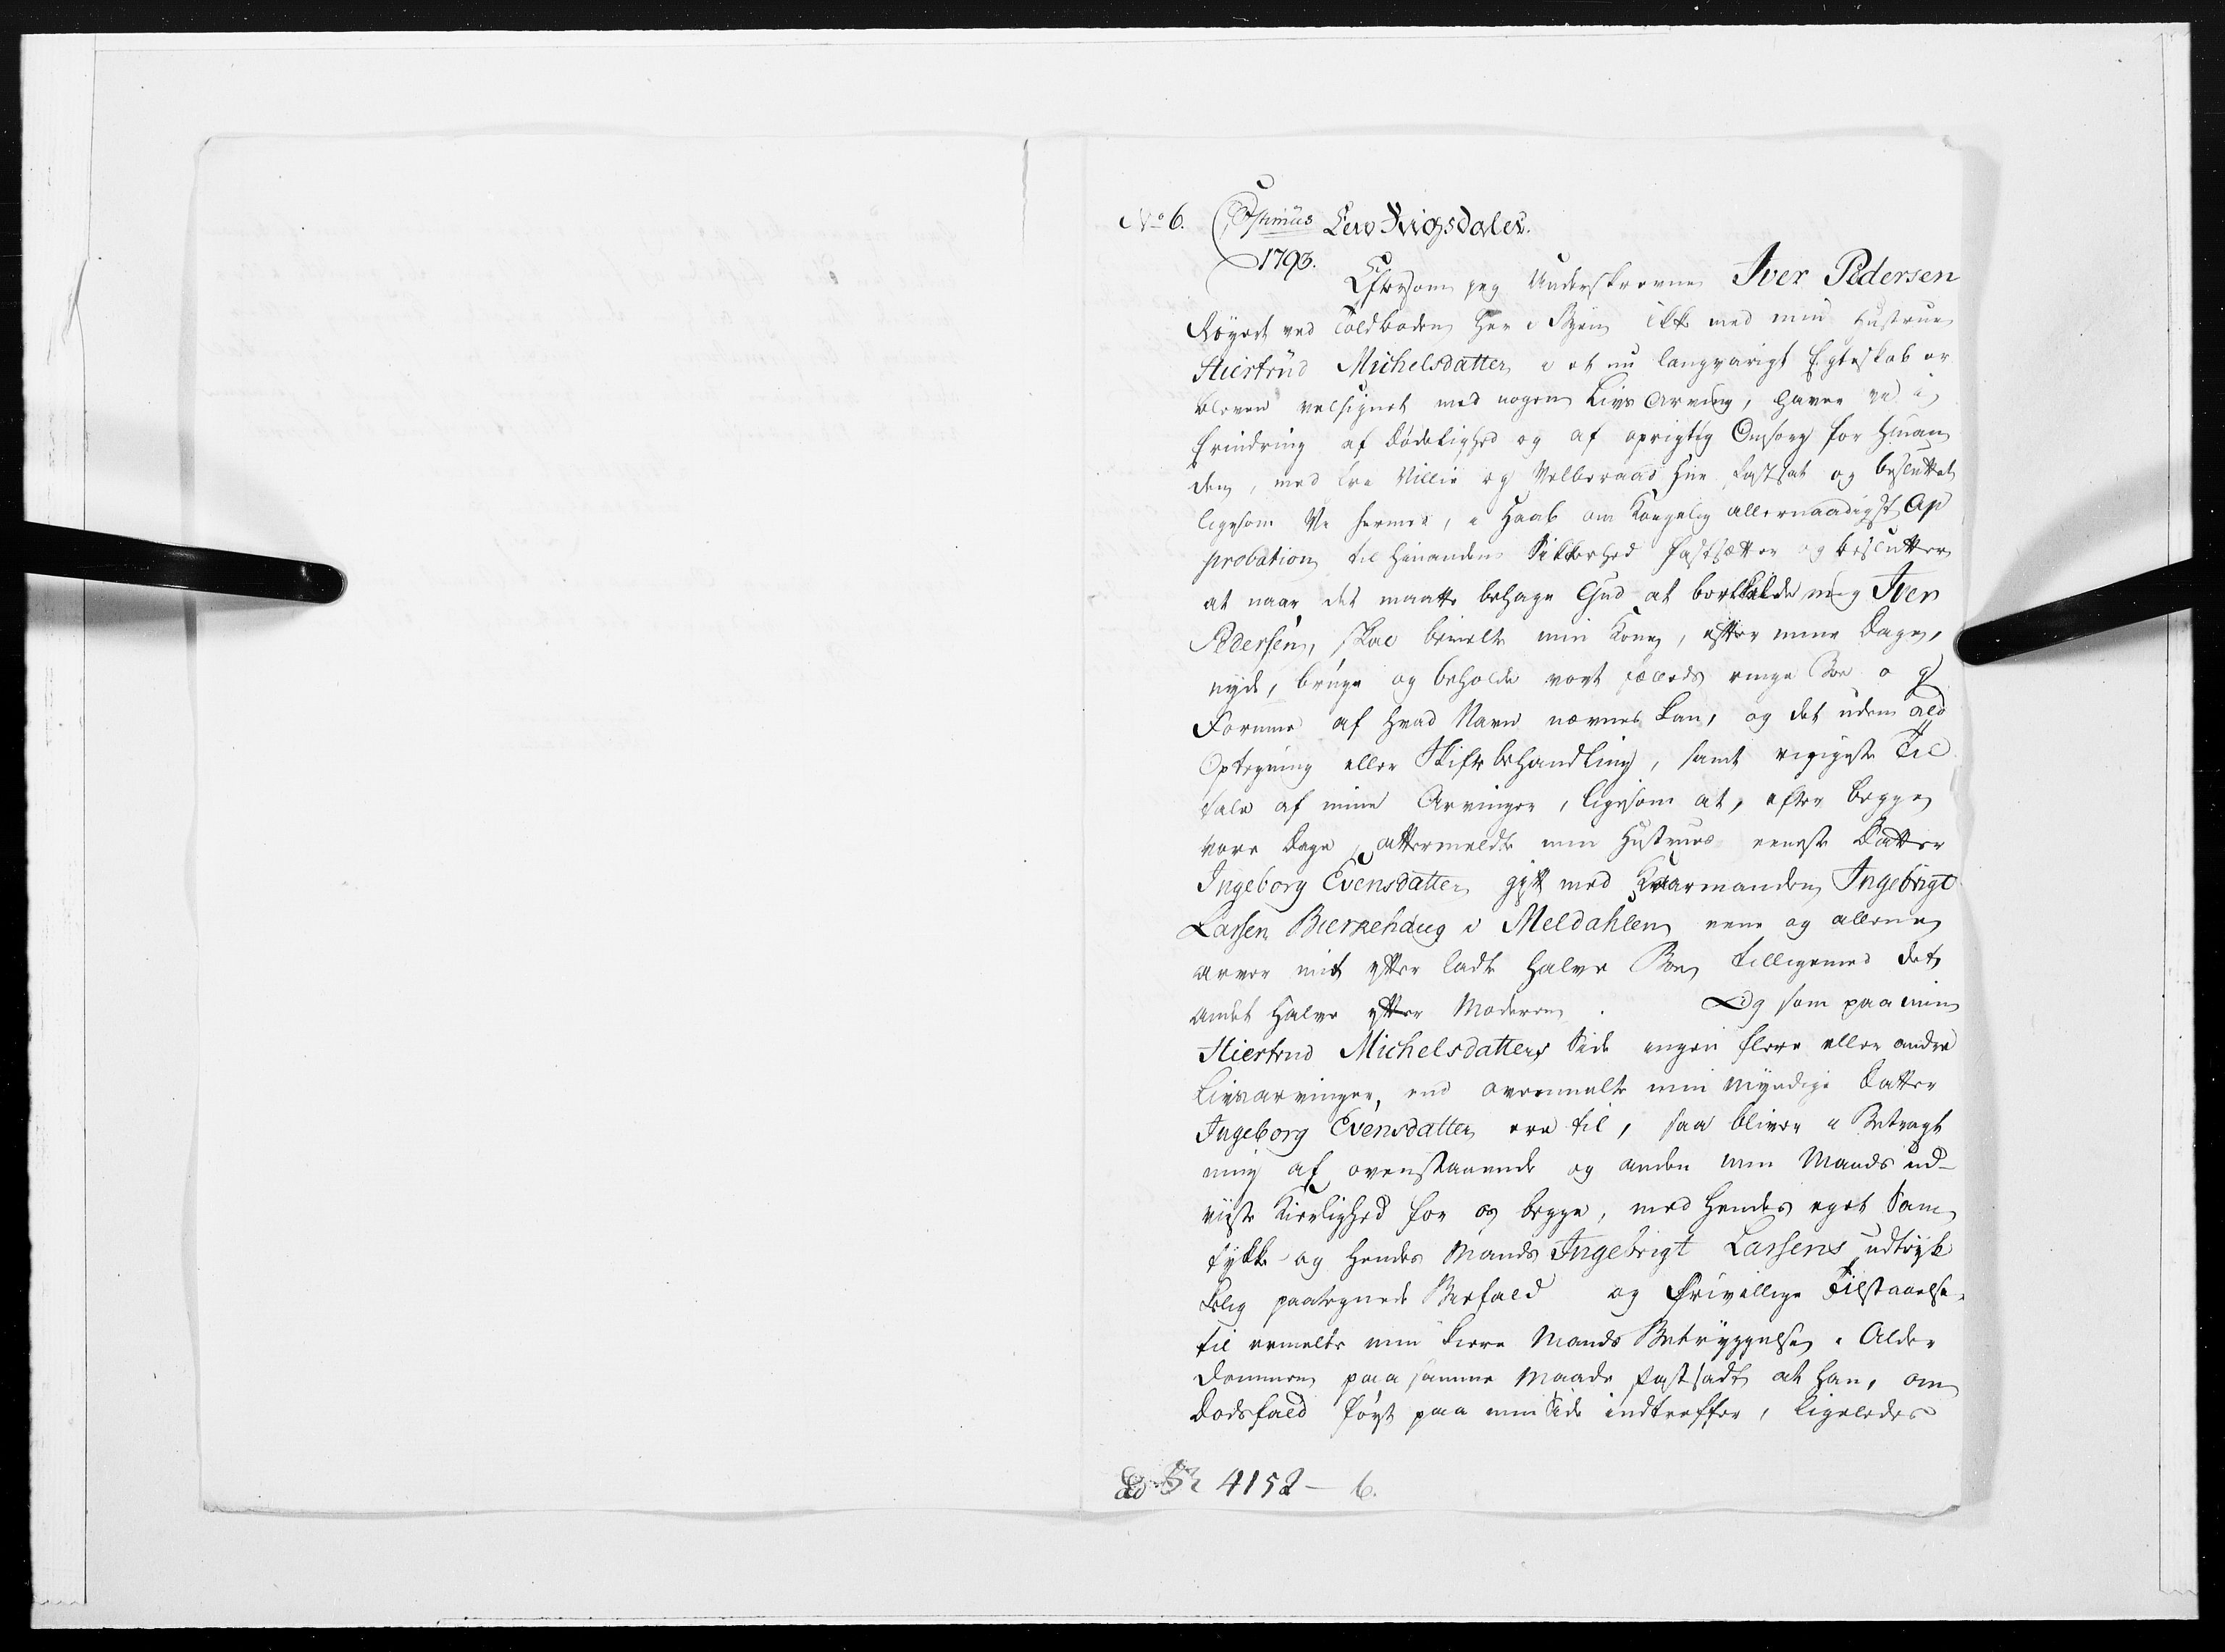 No 6. Optimus Een Rigsdaler.
1793.
Eftersom jeg Underskrevne Iver Pedersen
Røyert ved Toldboden her i Byen ikke med min Hustrue
Stiertrud Michelsdatter i et nu langvarigt Egteskab er
bleven velsignet med nogen Livs Arving, haver vi i
Erindring af Dødelighed og af oprigtig Omsorg for hinan
den, med frie Villie og Velberaad Hue fastsat og besluttet
ligesom Vi hermed, i Haab om Kongelig allernaadigst Ap
probation til hinandens Sikkerhed fastsætter og beslutter
at naar det maatte behage Gud at bortkalde mig Iver
Pedersen, skal bemelte min Kone, efter mine Dage,
nyde, bruge og beholde vort fælleds ringe Boe og
Formue af hvad Navn nævnes kan, og det uden ald
Optegning eller Skiftebehandling, samt vigigste Til
tale af mine Arvinger, ligesom at, efter begge
vore Dage, attermeldte min Hustrues eeneste Datter
Ingeborg Evensdatter gift med Huusmanden Ingebrigt
Larsen Bierkehaug i Meldahlen eene og allene
arver mit efterladte halve Boe, tilligemed det
andet halve efter Moderen. Og som paa min
Stiertrud Michelsdatters Side ingen flere eller andre
Livsarvinger, end ovenmelte min myndige Datter
Ingeborg Evensdatter ere til, saa bliver i Betragt
ning af ovenstaaende og anden min Mands ud-
viiste Kierlighed for os begge, med hendes eget Sam
tykke og hendes Mands Ingebrigt Larsens udtryk
kelig paategnede Biefald og frivillige Tilstaaelse,
til ermelte min kiere Mands Betryggelse i Alder
dommen paa samme Maade fastsadt at han, om
Dødsfald først paa min Side indtreffer, ligeledes
ad 4152 - 6.